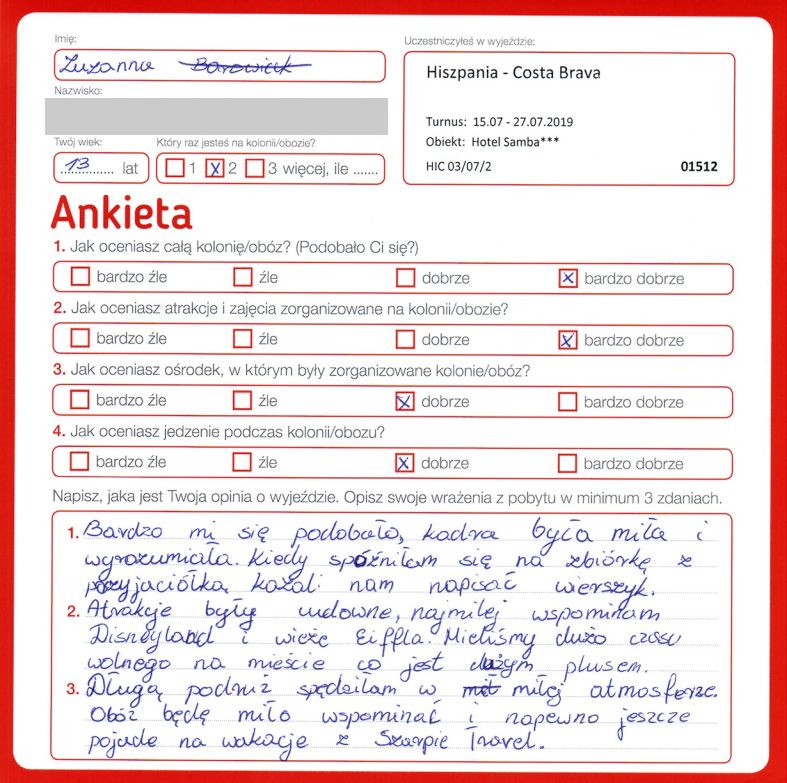 Imię:
Zuzanna
Nazwisko:
Twój wiek:
13 lat
Który raz jesteś na kolonii/obozie?
1 x 2 3 więcej, ile .......
Uczestniczyłeś w wyjeździe:
Hiszpania - Costa Brava
Turnus: 15.07 - 27.07.2019
Obiekt: Hotel Samba***
HIC 03/07/2 01512
Ankieta
1. Jak oceniasz całą kolonię/obóz? (Podobało Ci się?)
bardzo źle źle dobrze x bardzo dobrze
2. Jak oceniasz atrakcje i zajęcia zorganizowane na kolonii/obozie?
bardzo źle źle dobrze x bardzo dobrze
3. Jak oceniasz ośrodek, w którym były zorganizowane kolonie/obóz?
bardzo źle źle x dobrze bardzo dobrze
4. Jak oceniasz jedzenie podczas kolonii/obozu?
bardzo źle źle x dobrze bardzo dobrze
Napisz, jaka jest Twoja opinia o wyjeździe. Opisz swoje wrażenia z pobytu w minimum 3 zdaniach.
1. Bardzo mi się podobało, kadra była miła i
wyrozumiała. Kiedy spóźniłam się na zbiórkę z
przyjaciółką kazali nam napisać wierszyk.
2. Atrakcje były cudowne, najmilej wspominam
Disneyland i wieżę Eiffla. Mieliśmy dużo czasu
wolnego na mieście co jest dużym plusem.
3. Długą podróż spędziłam w miłej atmosferze.
Obóz będę miło wspominać i napewno jeszcze
pojadę na wakacje z Szarpie Travel.